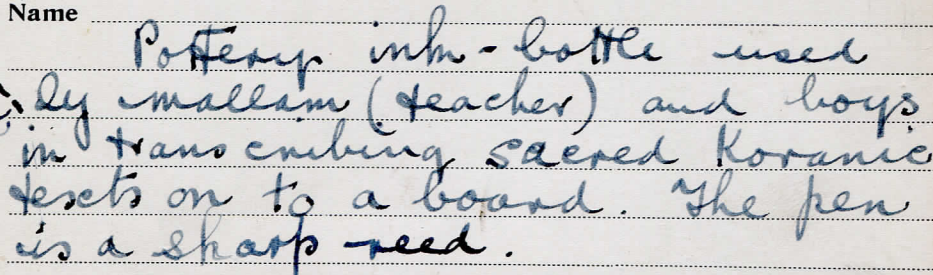 Name
Pottery ink-bottle used
by mallam (teacher) and boys
in transcribing sacred Koranic
texts on to a board. The pen
is a sharp reed.